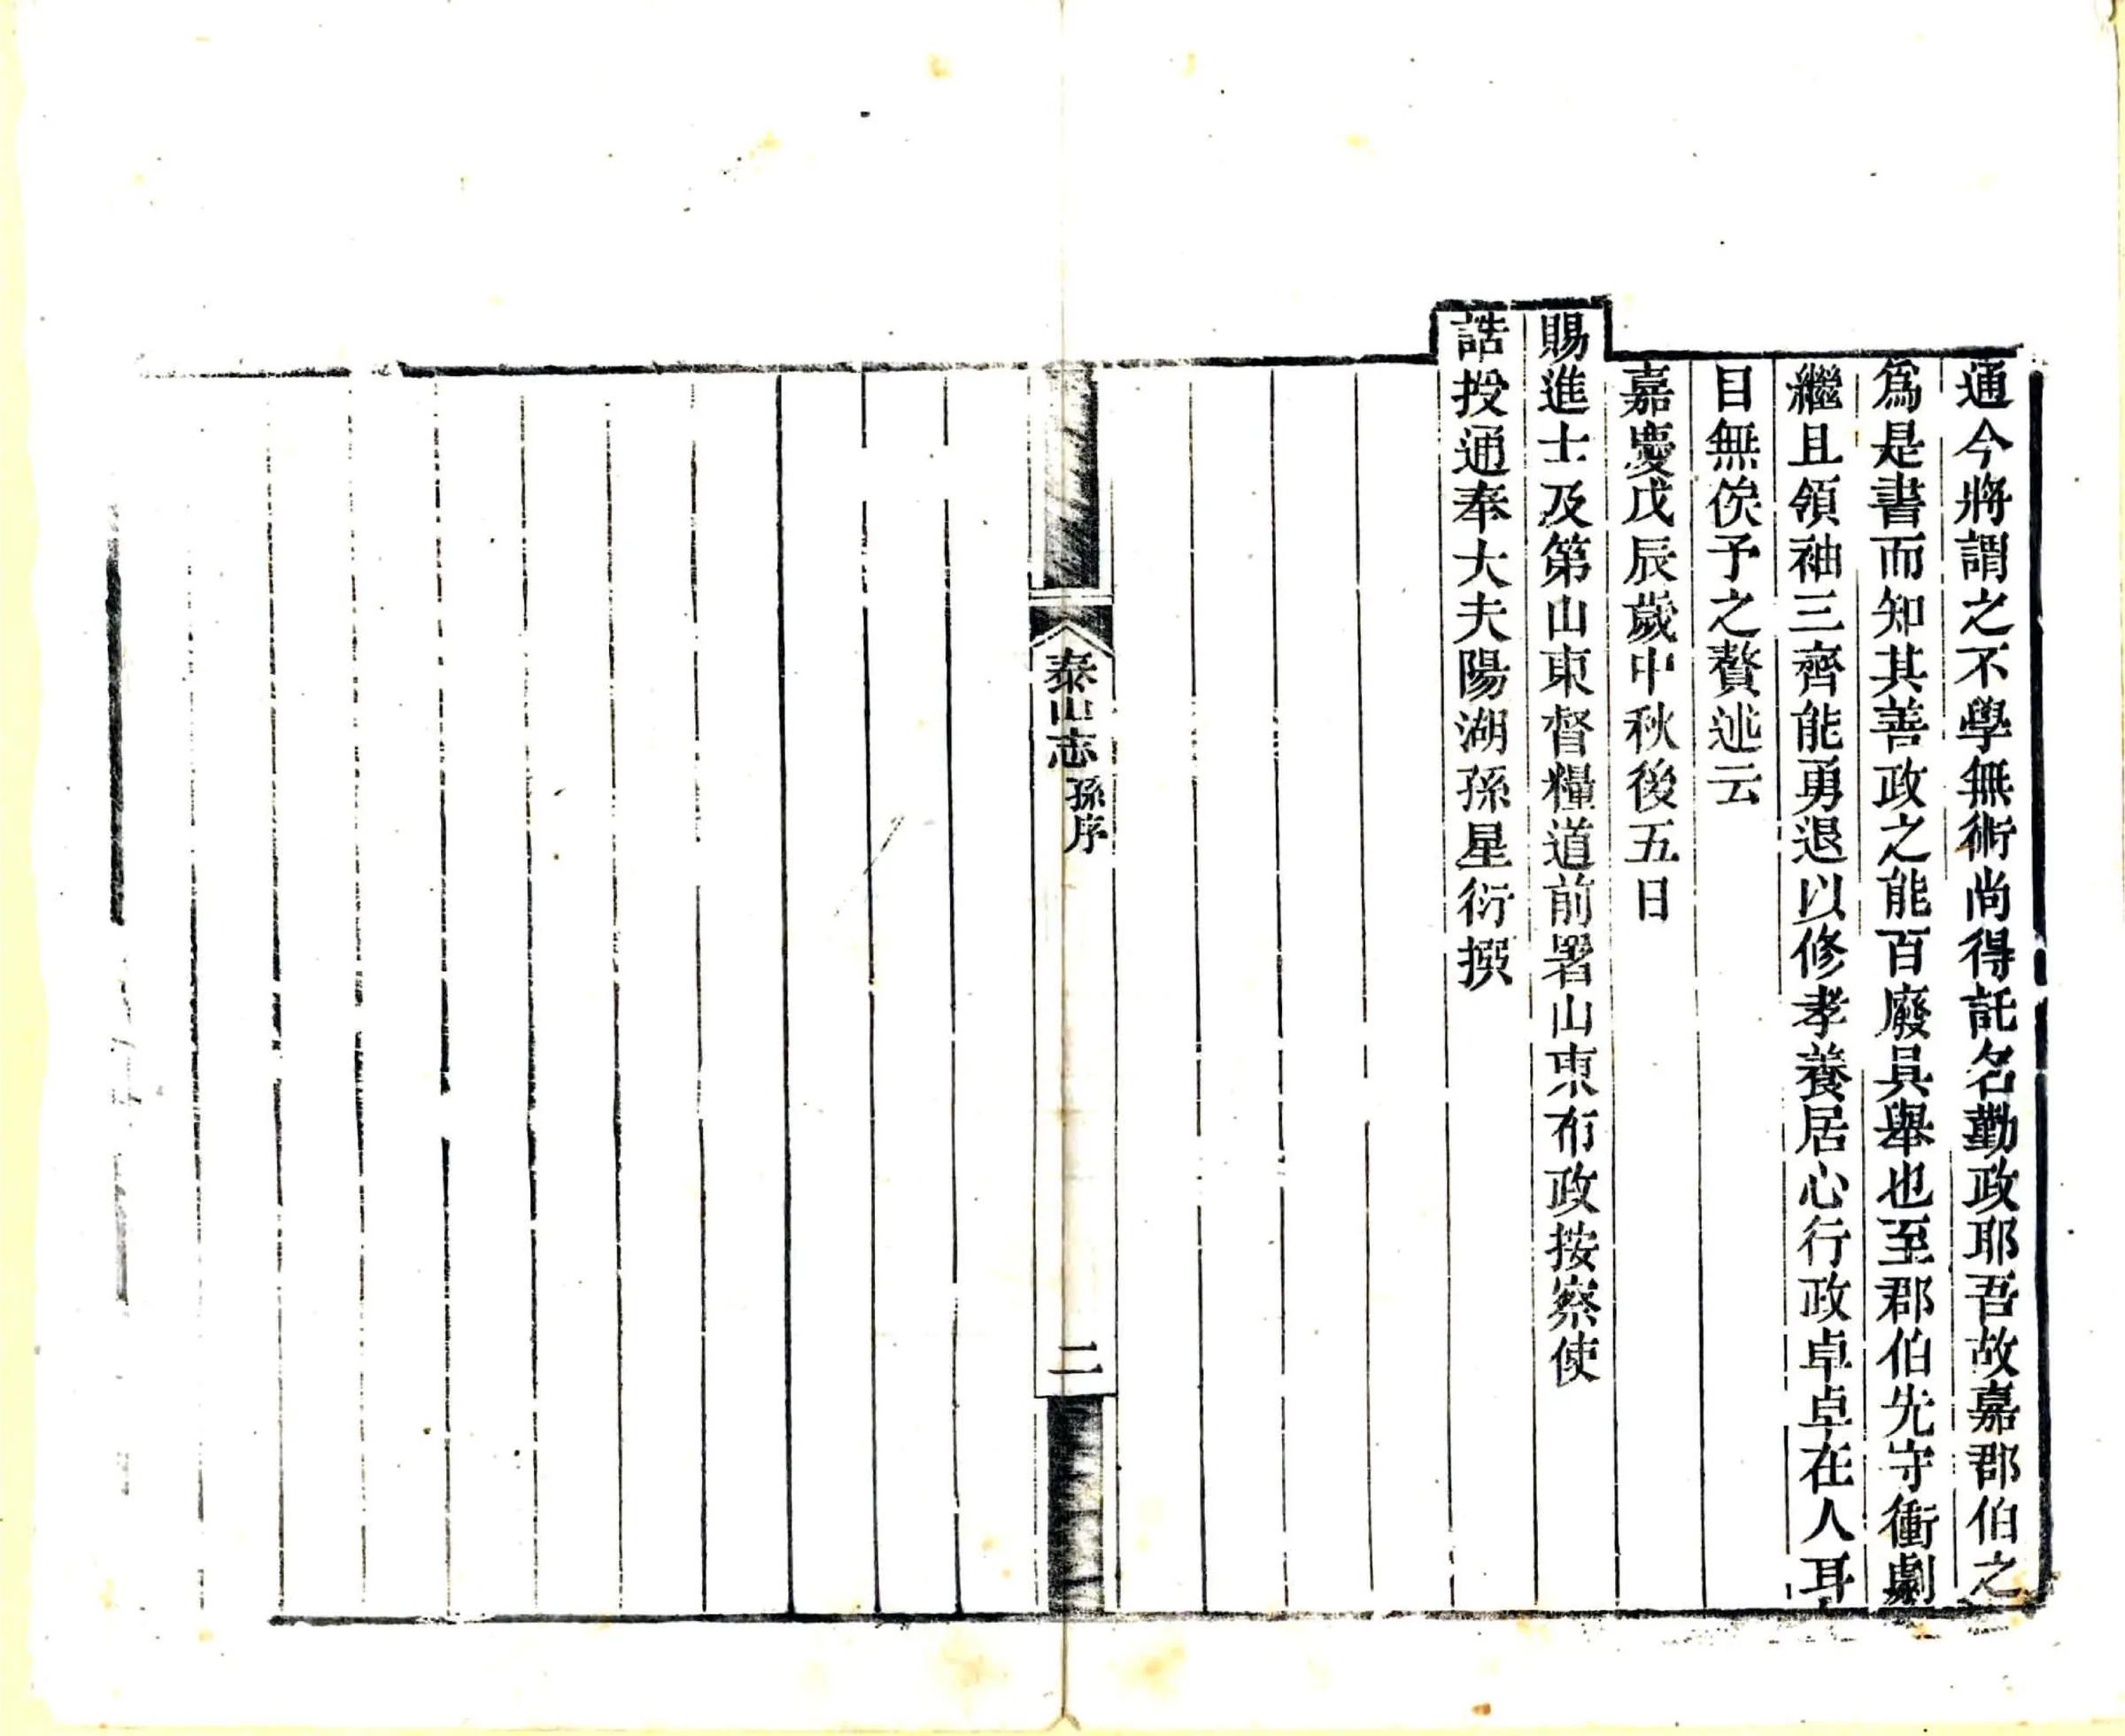 通今將謂之不學無術尚得託名勤政耶吾故嘉郡伯之
爲是書而知其善政之能百廢具舉也至郡伯先守衝劇
繼且領袖三齊能勇退以修孝養居心行政卓卓在人耳
目無俟予之贅述云
嘉慶戊辰歲中秋後五日
賜進士及第山東督糧道前署山東布政按察使
誥授通奉大夫陽湖孫星衍撰
泰山志 孫序
二